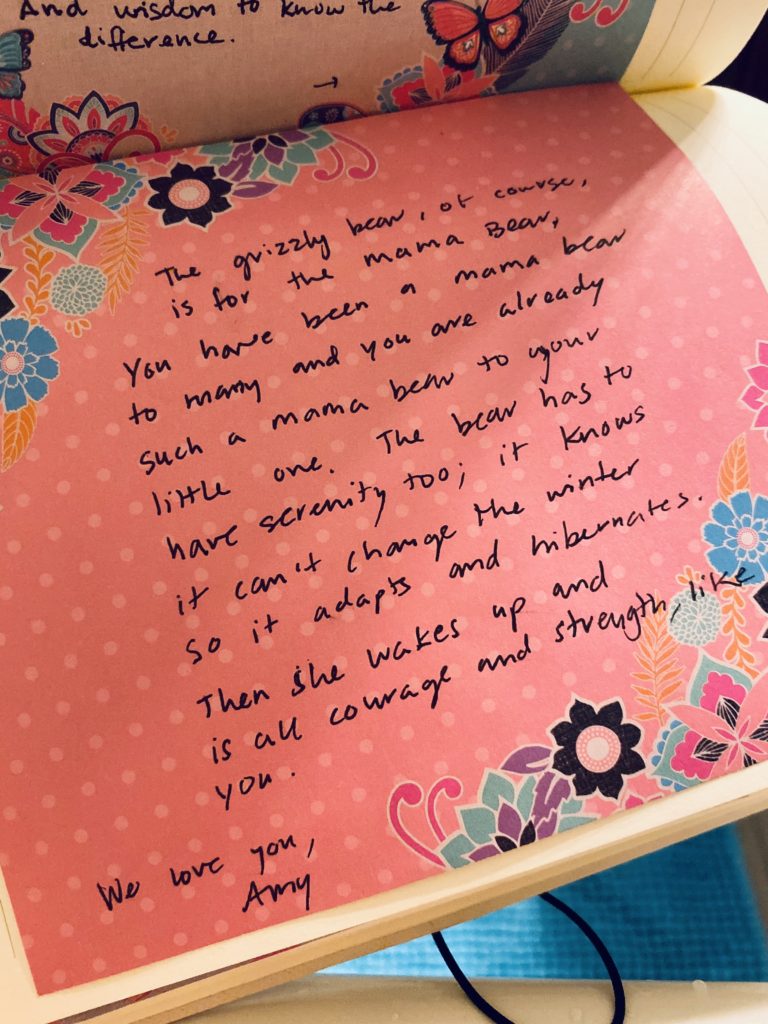 And wisdom to know the
difference.
→
The grizzly bear, of course,
is for the mama Bear,
You have been a mama bear
to many and you are already
such a mama bear to your
little one. The bear has to
have serenity too; it knows
it can't change the winter
so it adapts and hibernates.
Then she wakes up and
is all courage and strength, like
you.
We love you,
Amy